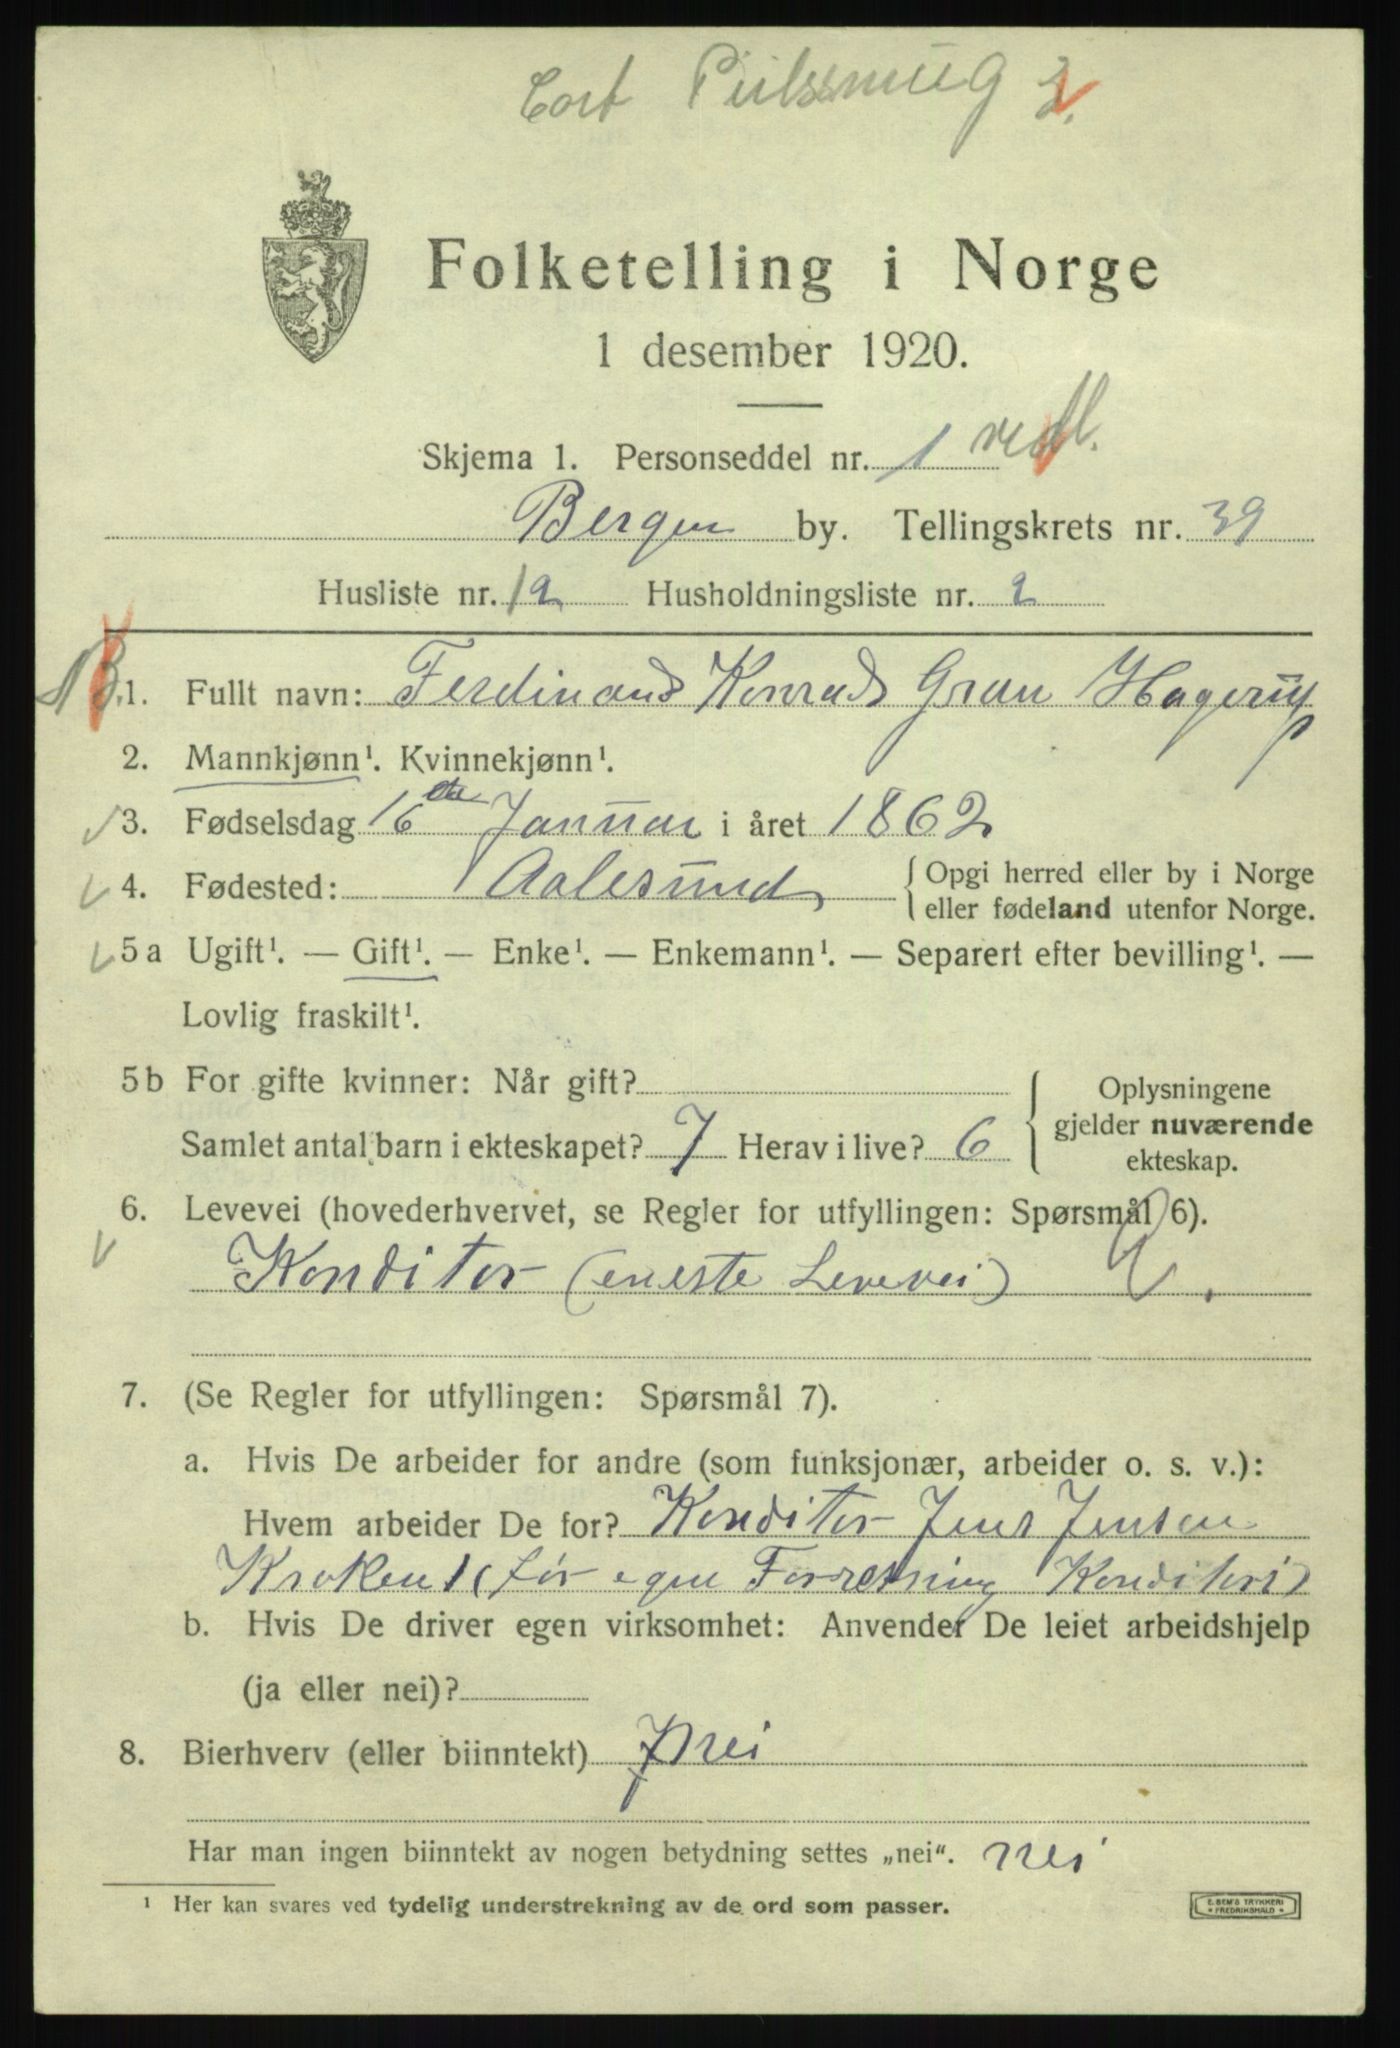 Cort Piilssmug 3.
Folketelling i Norge
1 desember 1920.
Skjema 1. Personseddel nr. 1 vedl.
Bergen by. Tellingskrets nr. 39
Husliste nr. 12 Husholdningsliste nr. 2
1. Fullt navn: Ferdinand Konrad Gran Hagerup
2. Mannkjønn¹. Kvinnekjønn¹.
3. Fødselsdag 16de Januar i året 1862
4. Fødested: Aalesund { Opgi herred eller by i Norge
eller fødeland utenfor Norge.
5 a Ugift¹. — Gift¹. — Enke¹. — Enkemann¹. — Separert efter bevilling¹. —
Lovlig fraskilt¹.
5 b For gifte kvinner: Når gift?
Samlet antal barn i ekteskapet? 7 Herav i live? 6
{ Oplysningene
gjelder nuværende
ekteskap.
6. Levevei (hovederhvervet, se Regler for utfyllingen: Spørsmål 6).
Konditor (eneste Levevei)
7. (Se Regler for utfyllingen: Spørsmål 7).
a. Hvis De arbeider for andre (som funksjonær, arbeider o. s. v.):
Hvem arbeider De for? Konditor Jens Jensen
Kroken 1 (før egen Forretning Konditori)
b. Hvis De driver egen virksomhet: Anvender De leiet arbeidshjelp
(ja eller nei)?
8. Bierhverv (eller biinntekt) nei
Har man ingen biinntekt av nogen betydning settes „nei“. nei
¹ Her kan svares ved tydelig understrekning av de ord som passer.
E. SEM'S TRYKKERI
FREDRIKSHALD